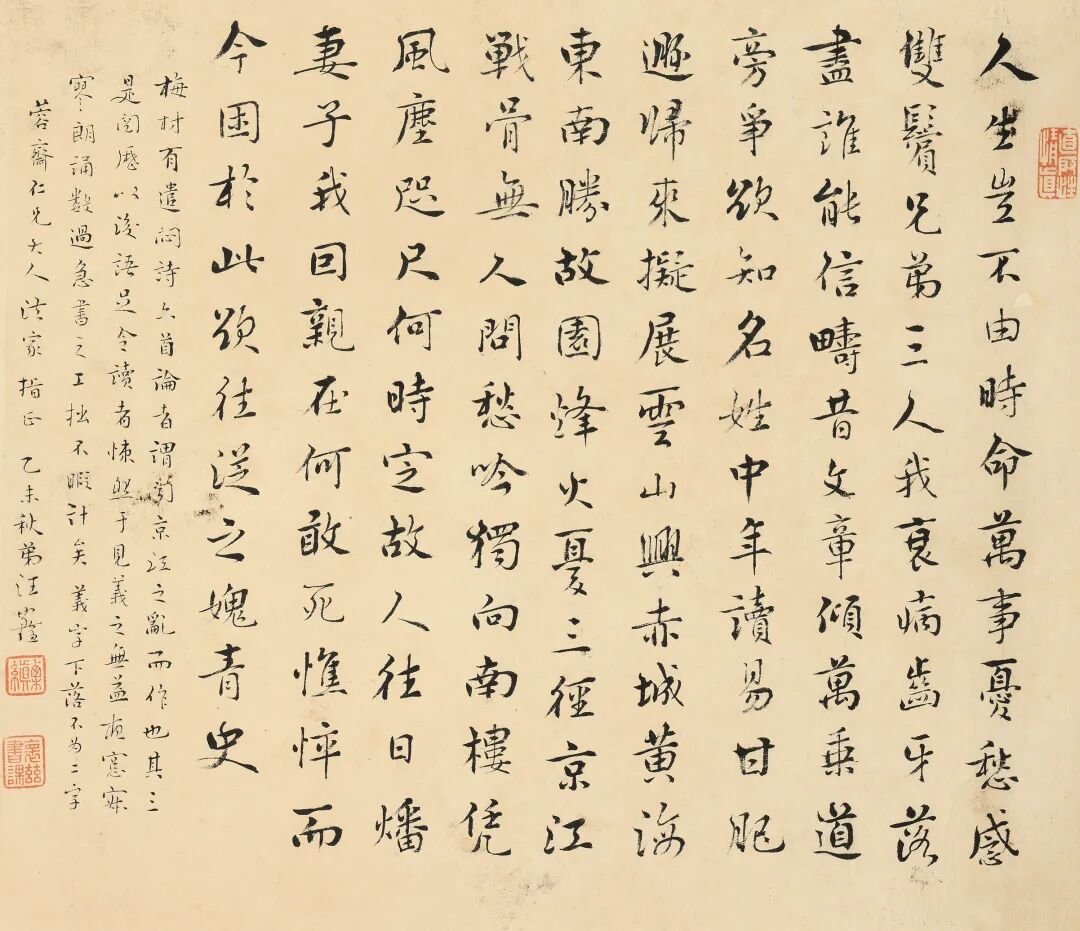 人生豈不由時命萬事憂愁感
雙鬢兄弟三人我衰病齒牙落
盡誰能信疇昔文章傾萬乘道
旁爭欲知名姓中年讀易甘肥
遯歸來擬展雲山興赤城黃海
東南勝故園烽火憂三徑京江
戰骨無人問愁吟獨向南樓凭
風塵咫尺何時定故人往日燔
妻子我因親在何敢死憔悴而
今困於此欲往從之愧青史
梅村有遣悶詩六首論者謂京江之亂而作也其三
是閱歷以後語足令讀者悚然于見義之無益窗寂
寥朗誦數過急書之工拙不暇計矣 義字下落不为二字
蓉齋仁兄大人法家指正 乙未秋弟汪